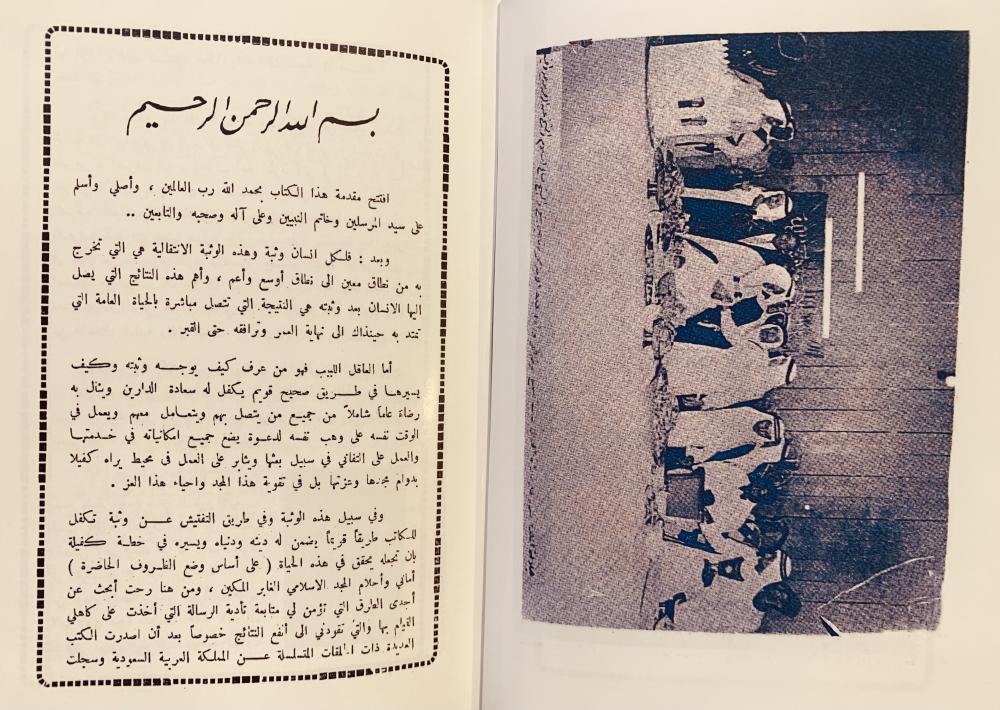 بسم الله الرحمن الرحيم
افتتح مقدمة هذا الكتاب بحمد الله رب العالمين ، وأصلي وأسلم
على سيد المرسلين وخاتم النبيين وعلى آله وصحبه والتابعين ..
وبعد : فلكل انسان وثبة وهذه الوثبة الانتقالية هي التي تخرج
به من نطاق معين الى نطاق أوسع وأعم ، وأهم هذه النتائج التي يصل
اليها الانسان بعد وثبته هي النتيجة التي تتصل مباشرة بالحياة العامة التي
تمتد به حينذاك الى نهاية العمر وترافقه حتى القبر .
أما العاقل اللبيب فهو من عرف كيف يوجه وثبته وكيف
يسيرها في طريق صحيح قويم يكفل له سعادة الدارين وينال به
رضاءً عاماً شاملاً من جميع من يتصل بهم ويتعامل معهم ويعمل في
الوقت نفسه على وهب نفسه لدعوة يضع جميع امكانياته في خدمتها
والعمل على التفاني في سبيل بعثها ويثابر على العمل في محيط يراه كفيلا
بدوام مجدها وعزتها بل في تقوية هذا المجد واحياء هذا العز .
وفي سبيل هذه الوثبة وفي طريق التفتيش عن وثبة تكفل
للكاتب طريقاً قويماً يضمن له دينه ودنياه ويسيره في خطة كفيلة
بان تجعله يحقق في هذه الحياة ( على أساس وضع الظروف الحاضرة )
أماني وأحلام المجد الاسلامي الغابر المكين ، ومن هنا رحت أبحث عن
أجدى الطرق التي تؤمن لي متابعة تأدية الرسالة التي أخذت على كاهلي
القيام بها والتي تقودني الى أنفع النتائج خصوصاً بعد أن اصدرت الكتب
العديدة ذات الحلقات المتسلسلة عن المملكة العربية السعودية وسجلت